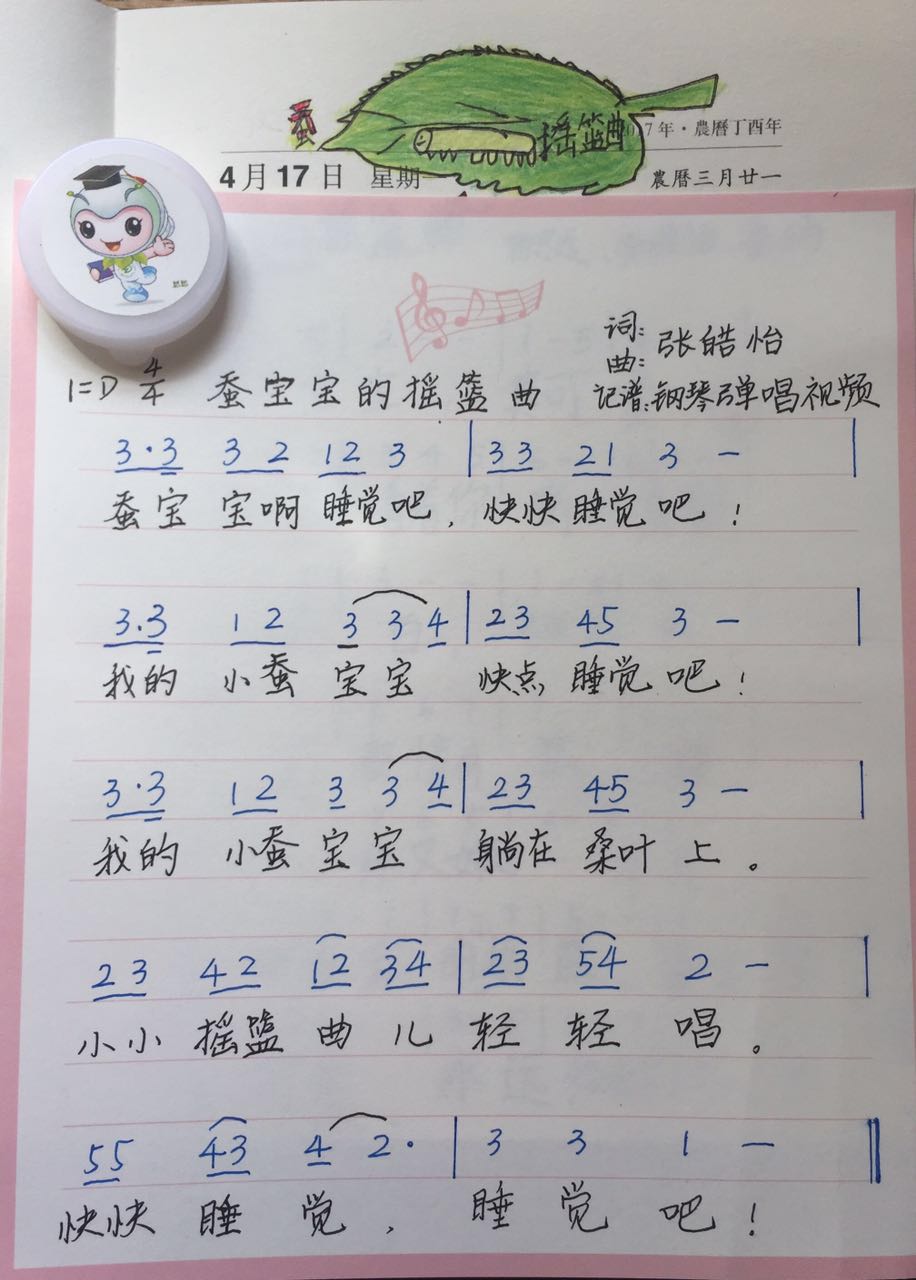 蚕 摇篮曲
7年·農曆丁酉年
4月17日 星期 農曆三月廿一
词:
曲: 张皓怡
1=D 4/4 蚕宝宝的摇篮曲 记谱:钢琴弹唱视频
3·3 3 2 12 3 | 33 21 3 — |
蚕宝 宝啊 睡觉吧，快快 睡觉 吧！
3·3 1 2 3 3 4 | 23 45 3 — |
我的 小蚕 宝宝 快点 睡觉 吧！
3·3 12 3 3 4 | 23 45 3 — |
我的 小蚕 宝宝 躺在 桑叶 上。
23 42 12 34 | 23 54 2 — |
小小 摇篮 曲 儿 轻 轻 唱。
55 43 4 2· | 3 3 1 — ‖
快快 睡 觉，睡 觉 吧！